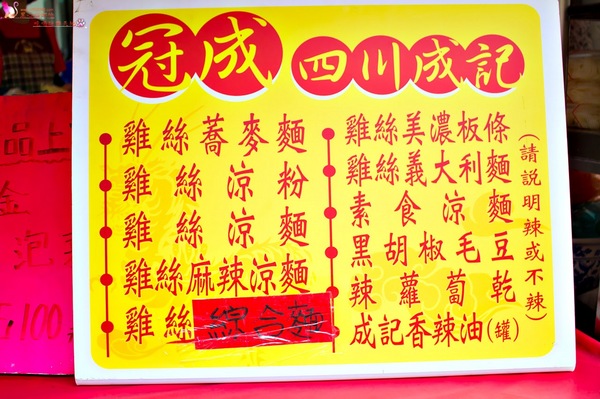 冠成 四川成記
雞絲蕎麥麵
雞絲涼粉
雞絲涼麵
雞絲麻辣涼麵
雞絲綜合麵
雞絲美濃板條
雞絲義大利麵
素食涼麵
黑胡椒毛豆
辣蘿蔔乾
成記香辣油(罐)
(請說明辣或不辣)
品上
金
泡
100